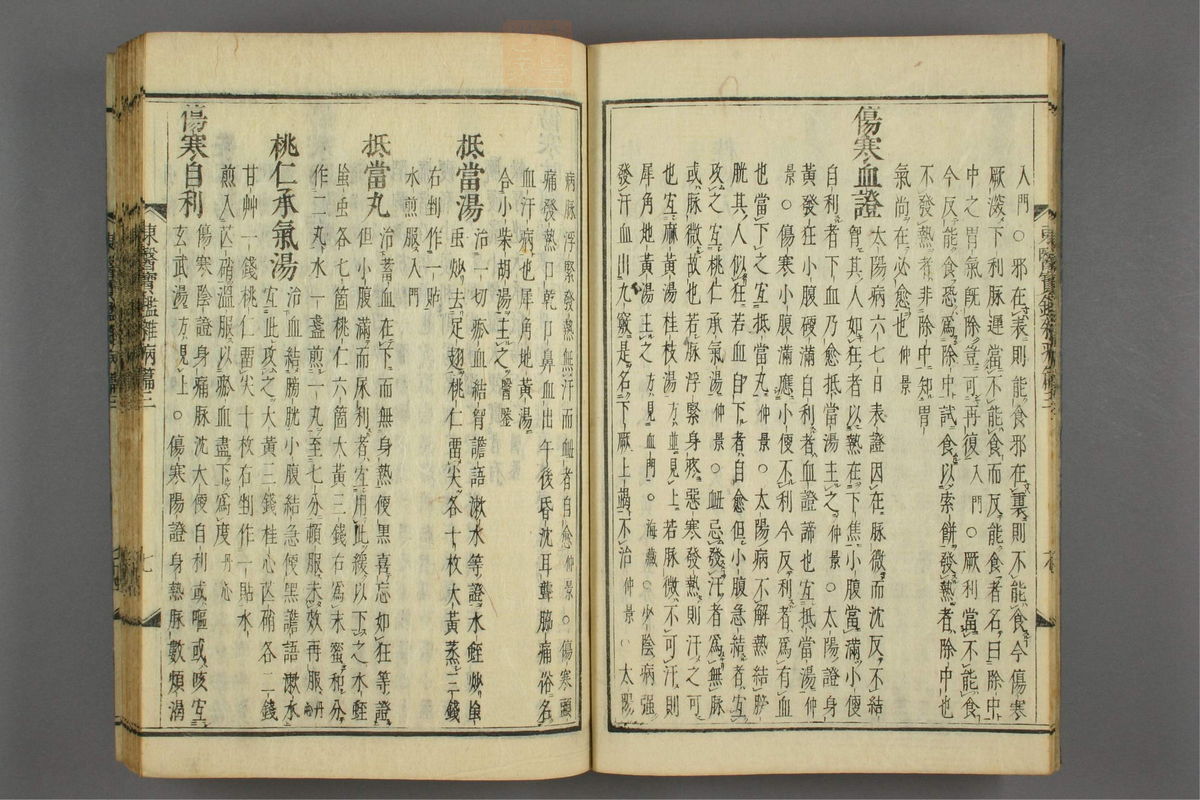 入門○邪在表則能食邪在裏則不能食今傷寒
厥深下利脉遲當不能食而反能食者名曰除中
中之胃氣旣除豈可再復入門○厥利當不能食
今反能食恐爲除中試食以索餠發熱者除中也
不發熱者非除中知胃
氣尚在必愈也仲景
傷寒血證
太陽病六七日表證因在脉微而沈反不結
胷其人如狂者以熱在下焦小腹當滿小便
自利者下血乃愈抵當湯主之仲景○太陽證身
黃發狂小腹硬滿自利者血證諦也宜抵當湯仲
景○傷寒小腹滿應小便不利今反利者爲有血
也當下之宜抵當丸仲景○太陽病不解熱結膀
胱其人似狂若血自下者自愈但小腹急結者宜
攻之宜桃仁承氣湯仲景○衄忌發汗者爲無脉
或脉微故也若脉浮緊身疼惡寒發熱則汗之可
也宜麻黃湯桂枝湯方並見上若脉微不可汗則
犀角地黃湯主之方見血門○海藏○少陰病强
發汗血出九竅是名下厥上竭不治仲景○太陽
病脉浮緊發熱無汗而衄者自愈仲景○傷寒頭
痛發熱口乾口鼻血出午後昏沈耳聾腦痛俗名
血汗病也犀角地黃湯
合小柴胡湯主之醫鑒
抵當湯
治一切瘀血結胷譫語漱水等證水蛭炒䖟
䖝炒去足翅桃仁雷尖各十枚大黃蒸三錢
右剉作一貼
水煎服入門
抵當丸
治蓄血在下而無身熱便黑喜忘如狂等證
但小腹滿而尿利者宜用此緩以下之水蛭
䖟䖝各七箇桃仁六箇大黃三錢右爲末蜜和分
作二丸水一盞煎一丸至七分頓服未效再服丹
心
桃仁承氣湯
治血結膀胱小腹結急便黑譫語漱水
宜此攻之大黃三錢桂心芒硝各二錢
甘艸一錢桃仁雷尖十枚右剉作一貼水
煎入芒硝溫服以瘀血盡下爲度丹心
傷寒自利
傷寒陰證身痛脉沈大便自利或嘔或咳宜
玄武湯方見上○傷寒陽證身熱脉數煩渴
東醫寶鑑雜病篇三
七